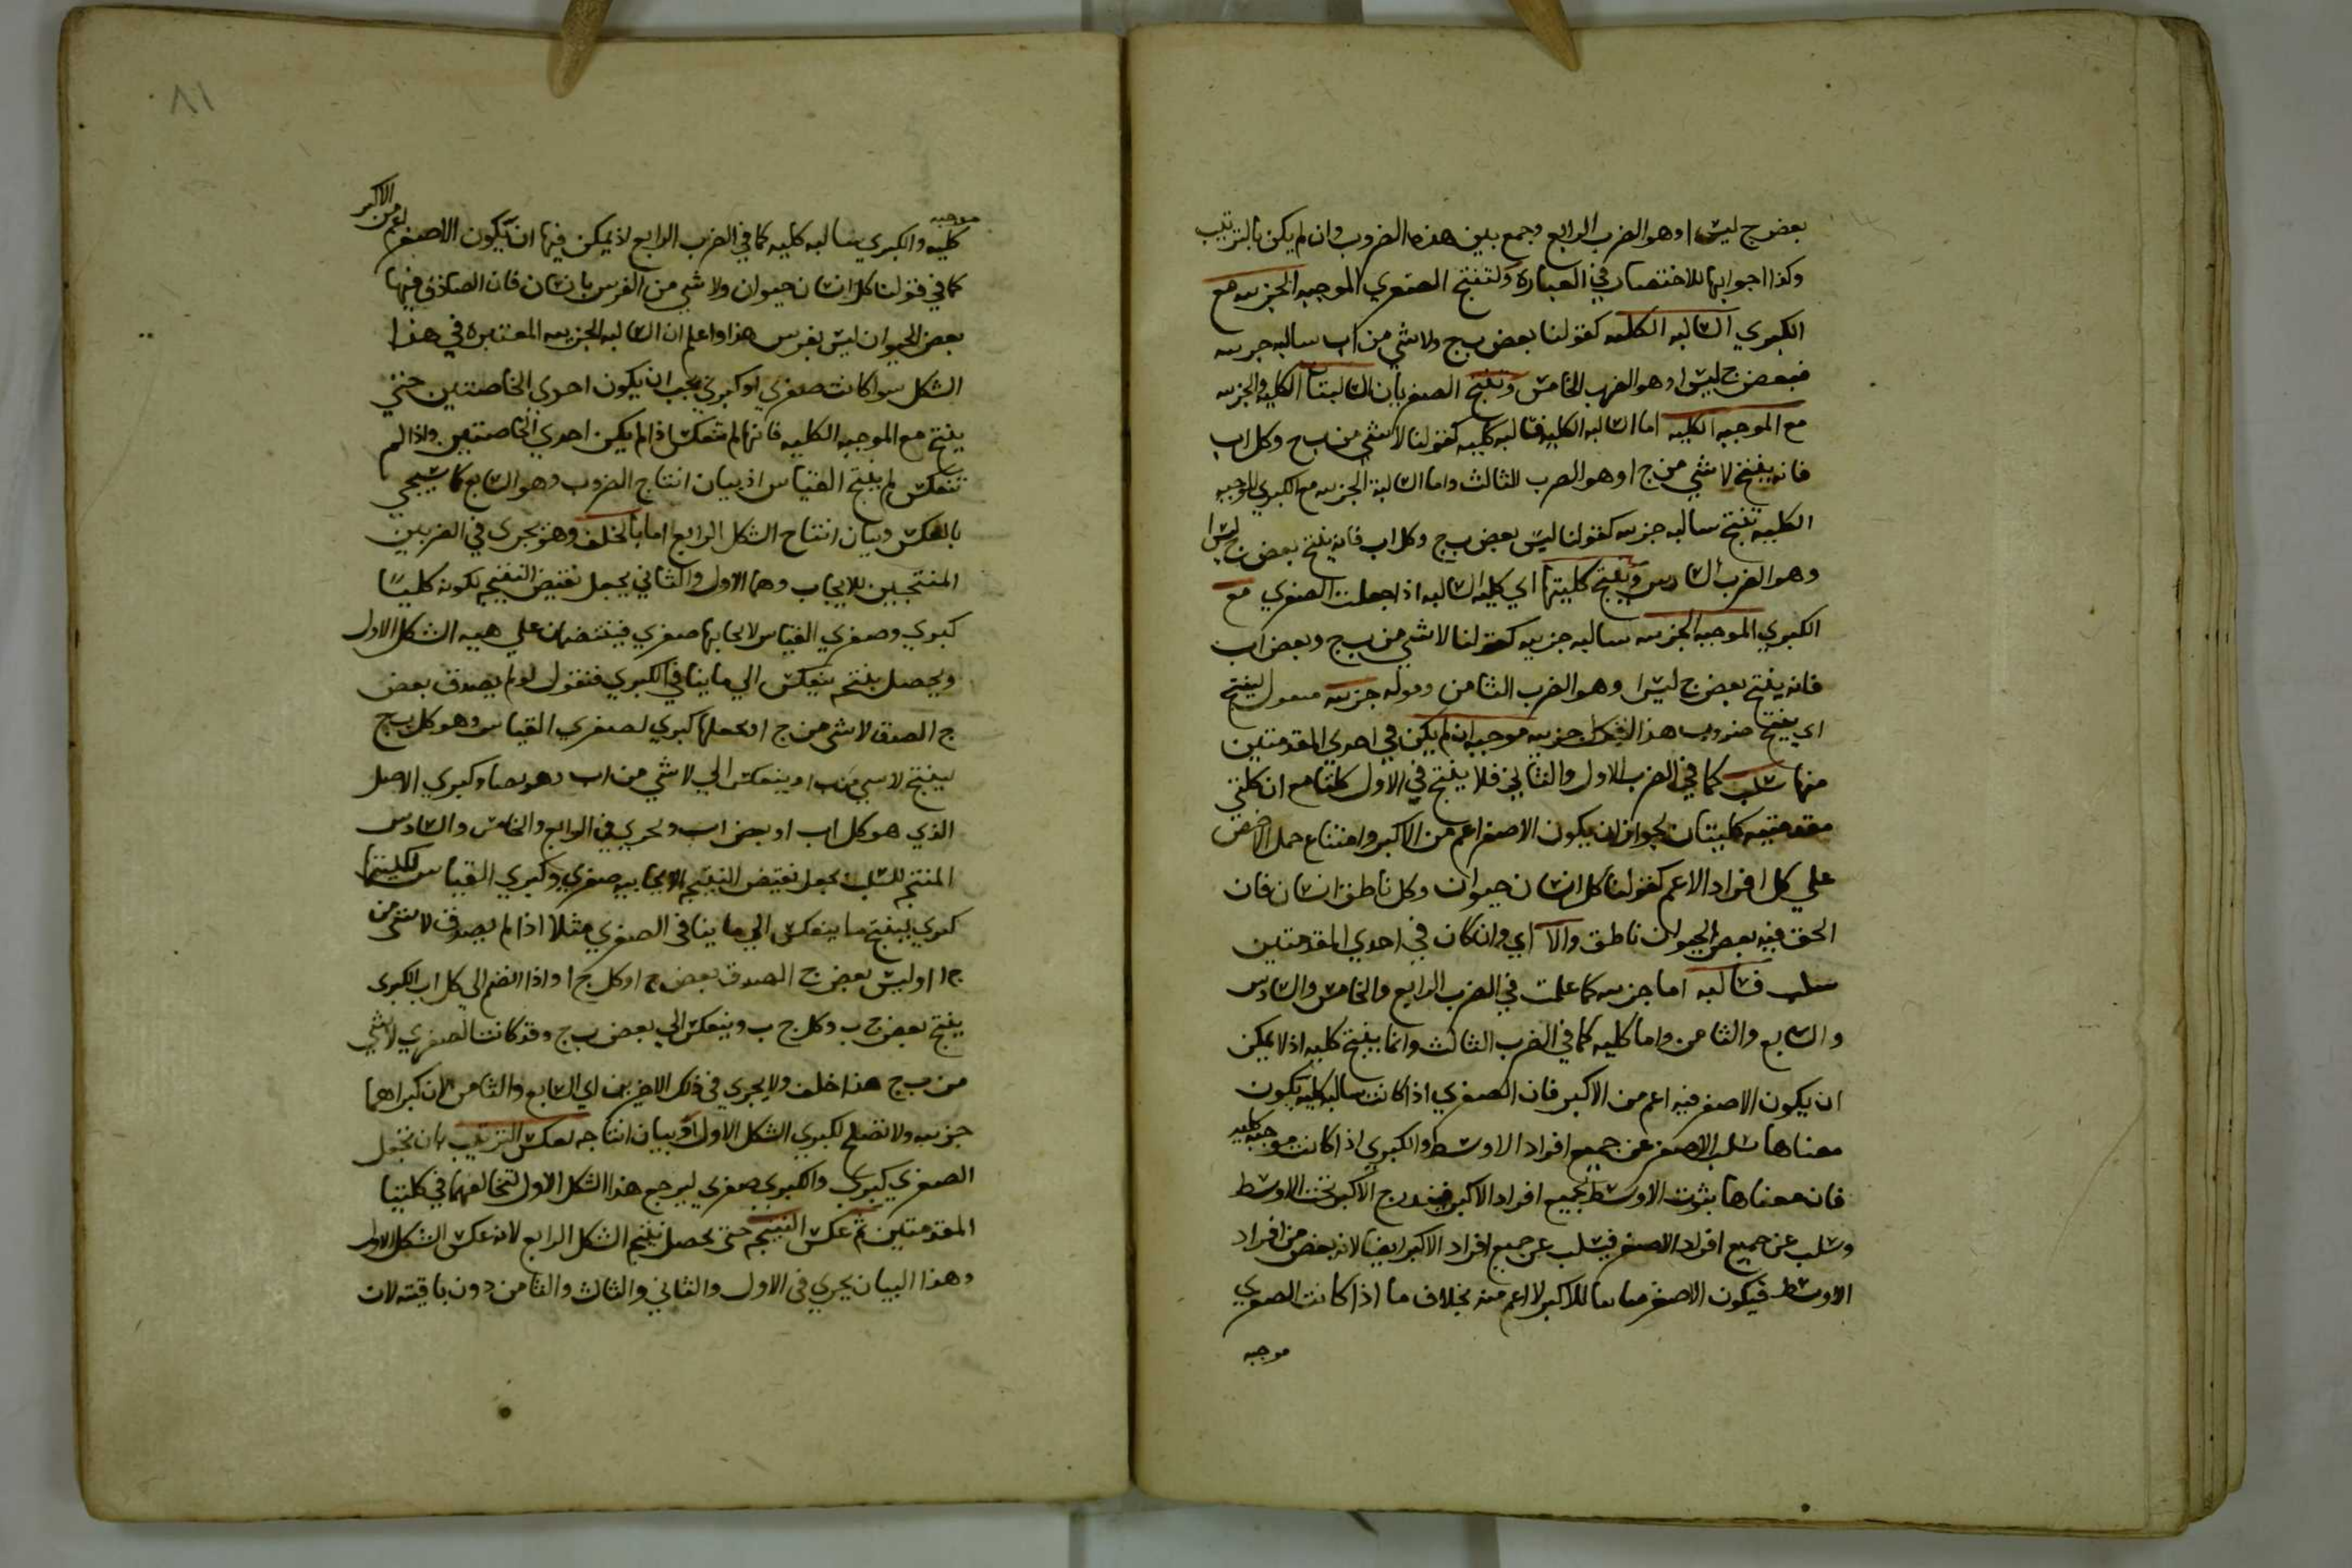 بعض ج ليس ا وهو الضرب الرابع وجمع بين هذه الضروب وان لم يكن بالترتيب
وكذا اجوابها للاختصار في العبارة ولتنتج الصغري الموجبه الجزييه مع
الكبري السالبه الكليه كقولنا بعض ب ج ولا شي من اب سالبه جزييه
فبعض ج ليس ا وهو الضرب الخامس وتنتج الصغريان السالبتان الكليه والجزييه
مع الموجبه الكليه اما السالبه الكليه فسالبه كليه كقولنا لا شي من ب ج وكل اب
فانه ينتج لا شي من ج ا وهو الضرب الثالث واما السالبة الجزييه مع الكبري الموجبه
الكليه تنتج سالبه جزييه كقولنا ليس بعض ب ج وكل اب فانه ينتج بعض ج ليس ا
وهو الضرب السادس وينتج كليتها اي كليه السالبه اذا جعلت الصغري مع
الكبري الموجبه الجزييه سالبه جزييه كقولنا لا شي من ب ج وبعض اب
فانه ينتج بعض ج ليس ا وهو الضرب الثامن وقوله جزييه مفعول لينتج
اي ينتج ضروب هذا الشكل جزييه موجبه ان لم يكن في احدي المقدمتين
منها سلب كما في الضرب الاول والثاني فلا ينتج في الاول كليا مع ان كلتي
مقدمتيه كليتان لجواز ان يكون الاصغر اعم من الاكبر وامتناع حمل الاخص
علي كل افراد الاعم كقولنا كل انسان حيوان وكل ناطق انسان فان
الحق فيه بعض الحيوان ناطق والا اي وان كان في احدي المقدمتين
سلب فسالبه اما جزييه كما علمت في الضرب الرابع والخامس والسادس
والسابع والثامن واما كليه كما في الضرب الثالث وانما ينتج كليه اذ لا يمكن
ان يكون الاصغر فيه اعم من الاكبر فان الصغري اذا كانت سالبه كليه يكون
معناها سلب الاصغر عن جميع افراد الاوسط والكبري اذا كانت موجبه كليه
فان معناها ثبوت الاوسط لجميع افراد الاكبر فيندرج الاكبر تحت الاوسط
وسلب عن جميع افراد الاصغر فيسلب عن جميع افراد الاكبر ايضا لانه بعض من افراد
الاوسط فيكون الاصغر مباينا للاكبر لا اعم منه بخلاف ما اذا كانت الصغري
موجبه
٨١
موجبه
كليه والكبري سالبه كليه كما في الضرب الرابع اذ يمكن فيها ان يكون الاصغر اعم من الاكبر
كما في قولنا كل انسان حيوان ولا شي من الفرس بانسان فان الصادق فيها
بعض الحيوان ليس بفرس هذا واعلم ان السالبه الجزييه المعتبره في هذا
الشكل سوا كانت صغري او كبري يجب ان يكون احدي الخاصتين حتي
ينتج مع الموجبه الكليه فانها لم تنعكس اذا لم يكن احدي الخاصتين واذا لم
تنعكس لم ينتج القياس اذ بيان انتاج الضروب وهو السابع كما سيجي
بالعكس وبيان انتاج الشكل الرابع اما بالخلف وهو يجري في الضربين
المنتجين للايجاب وهما الاول والثاني يجعل نقيض النتيجه لكونه كليّا
كبري وصغري القياس لايجابها صغري فينتضمان علي هييه الشكل الاول
ويحصل ينتج ينعكس الي ما ينافي الكبري فنقول لو لم يصدق بعض
ج ا لصدق لا شي من ج ا ونجعلها كبري لصغري القياس وهو كل ب ج
لينتج لا شي من ب ا وينعكس الي لا شي من اب وهو يضاد كبري الاصل
الذي هو كل اب او بعض اب ويجري في الرابع والخامس والسادس
المنتج للسلب يجعل نقيض النتيجه الايجابيه صغري وكبري القياس لكليتها
كبري لينتج ما ينعكس الي ما ينافي الصغري مثلا اذا لم يصدق لا شي من
ج ا او ليس بعض ج ا لصدق بعض ج ا وكل ج ا واذا انضم الي كل اب الكبري
ينتج بعض ج ب وكل ج ب وينعكس الي بعض ب ج وقد كانت الصغري لا شي
من ب ج هذا خلف ولا يجري في ذلك الاخيرين اي السابع والثامن لان كبراهما
جزييه ولا تصلح لكبري الشكل الاول او بيان انتاجه بعكس الترتيب بان تجعل
الصغري كبري والكبري صغري ليرجع هذا الشكل الاول لتخالفهما في كلتيا
المقدمتين ثم عكس النتيجه حتي يحصل نتيجه الشكل الرابع لانه عكس الشكل الاول
وهذا البيان يجري في الاول والثاني والثالث والثامن دون باقيته لان